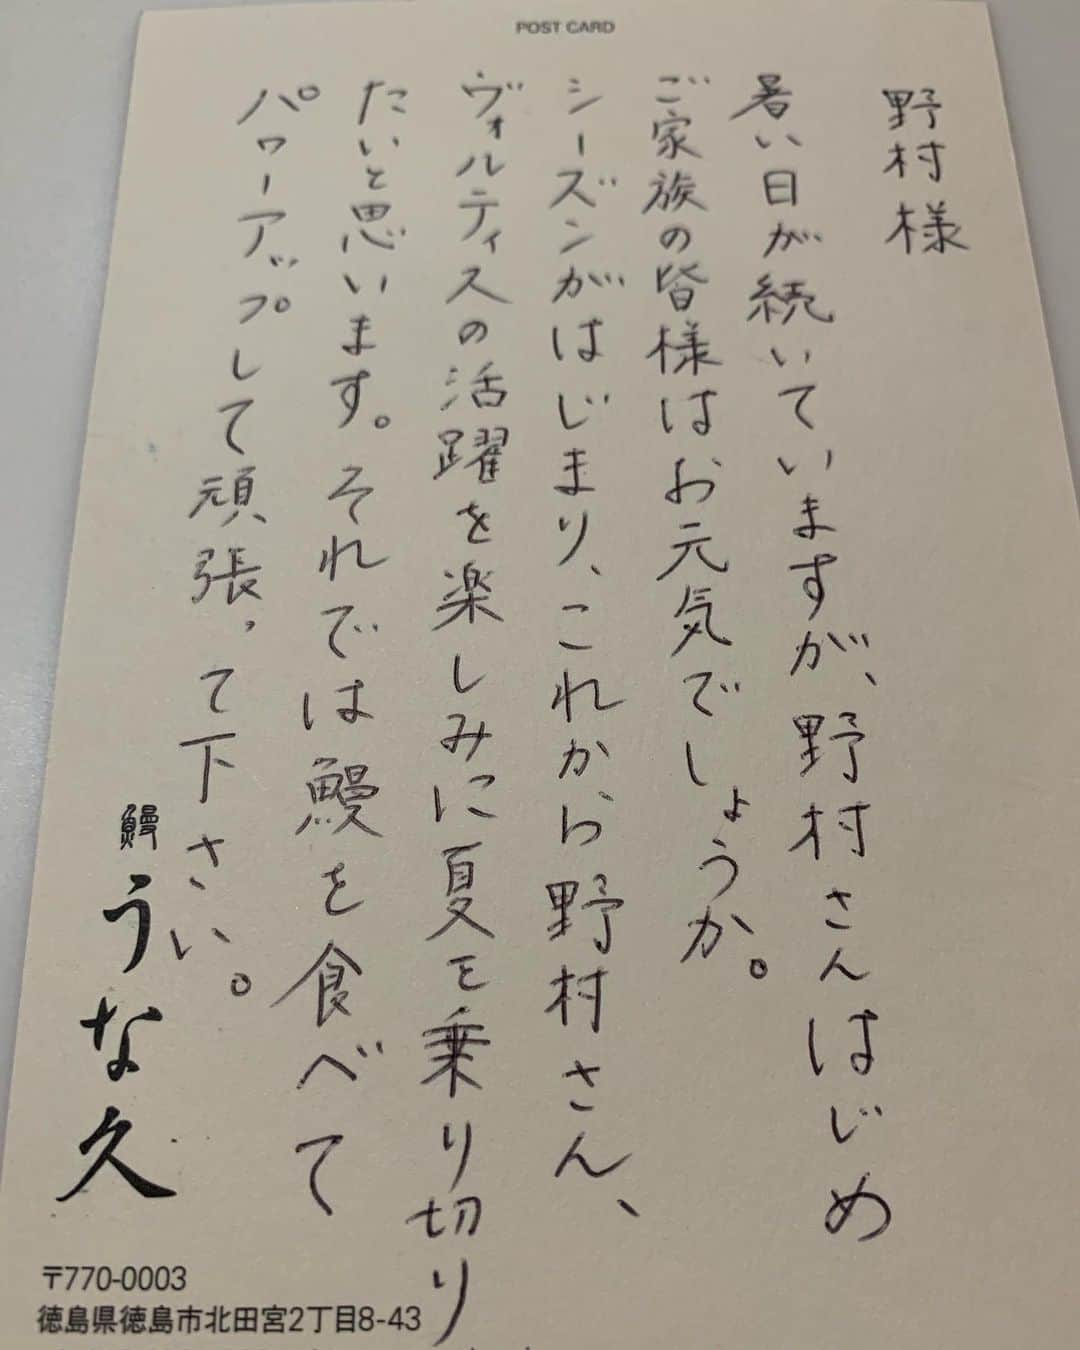 POST CARD
野村様
暑い日が続いていますが、野村さんはじめ
ご家族の皆様はお元気でしょうか。
シーズンがはじまり、これから野村さん、
ヴォルティスの活躍を楽しみに夏を乗り切り
たいと思います。それでは鰻を食べて
パワーアップして頑張って下さい。
鰻
うな久
〒770-0003
徳島県徳島市北田宮2丁目8-43